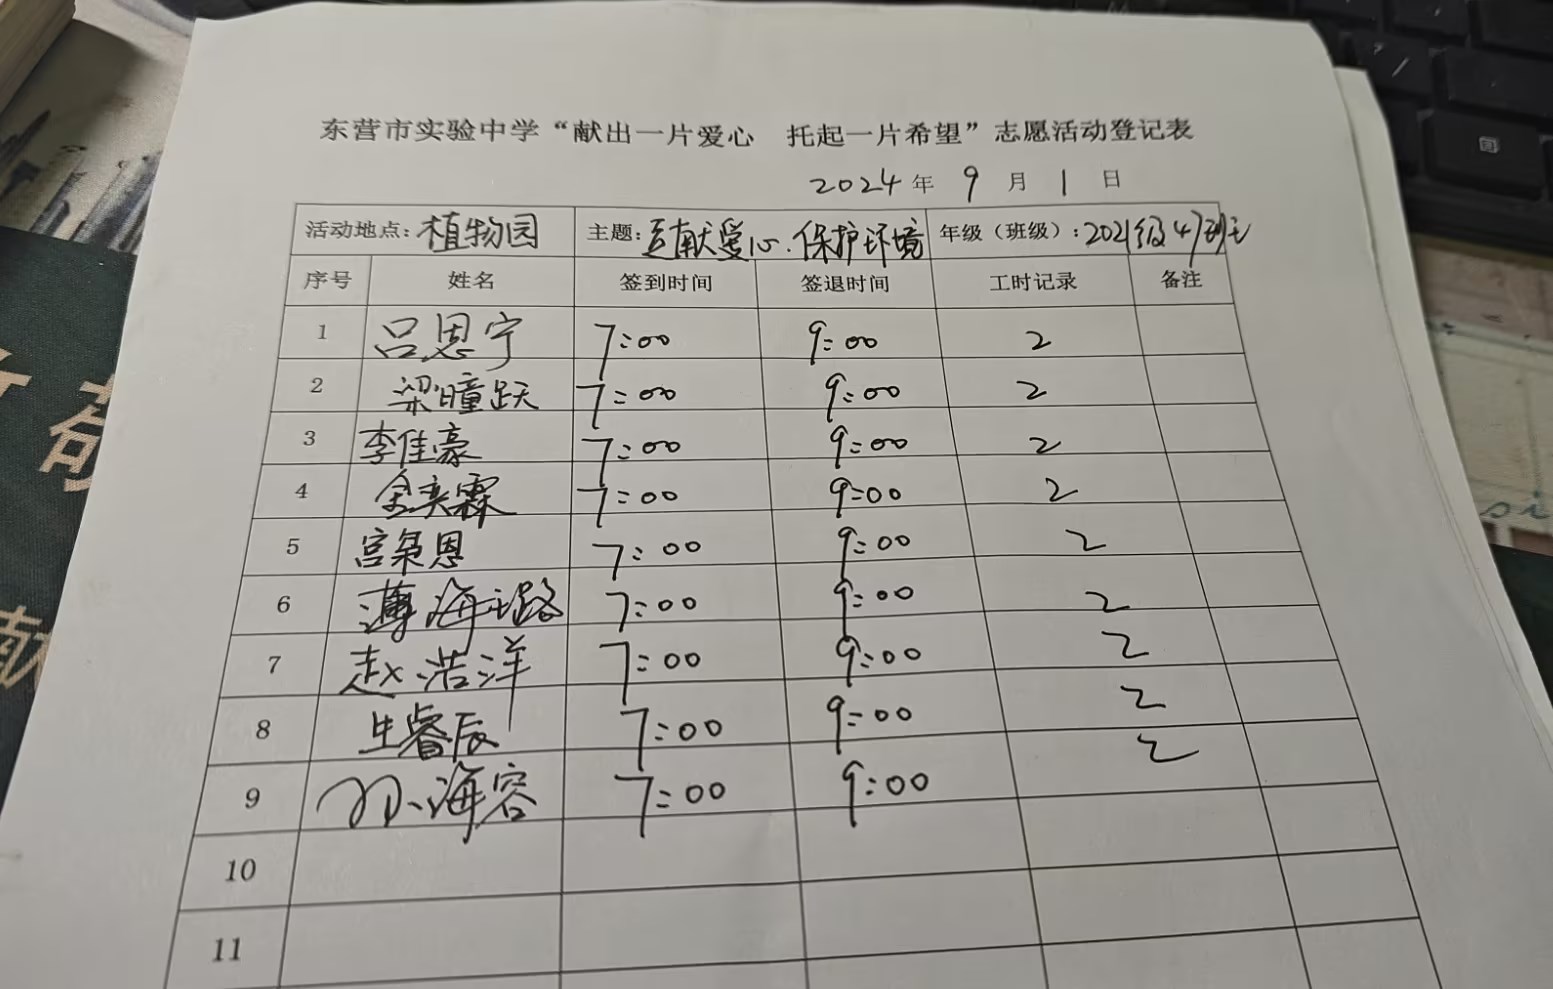 东营市实验中学“献出一片爱心 托起一片希望”志愿活动登记表
2024年 9月 1日
活动地点：植物园 主题：献爱心.保护环境 年级（班级）：2021级4班
序号 姓名 签到时间 签退时间 工时记录 备注
1 吕恩宁 7:00 9:00 2
2 梁瞳跃 7:00 9:00 2
3 李佳豪 7:00 9:00 2
4 奕霖 7:00 9:00 2
5 宫枭恩 7:00 9:00 2
6 薄海璐 7:00 9:00 2
7 赵浩洋 7:00 9:00 2
8 生睿辰 7:00 9:00 2
9 孙海容 7:00 9:00 2
10
11
献
si